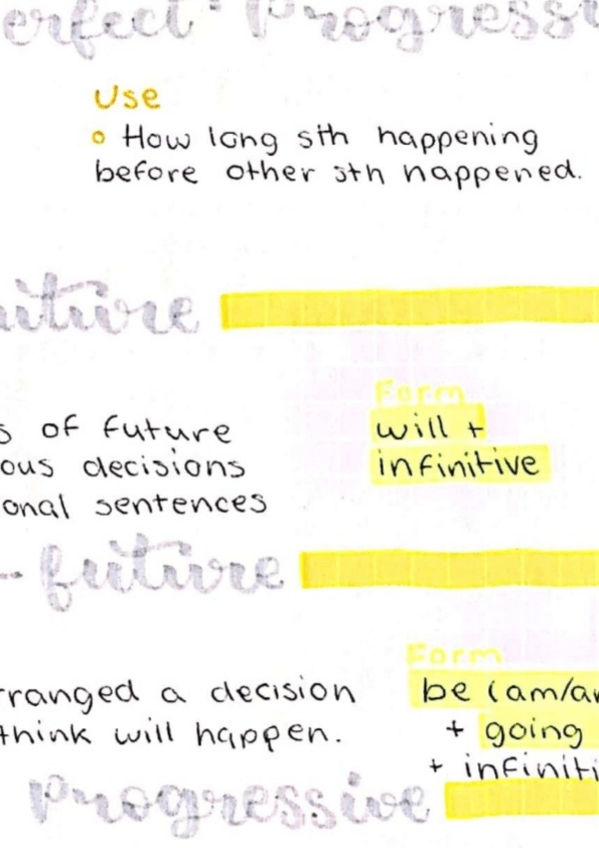 Progressi
Use
• How long sth happening
before other sth happened.
Form
s of future
will +
ous decisions
infinitive
onal sentences
- future
Form
rranged a decision
be (am/ar
think will happen.
+ going
+ infiniti
Progressive